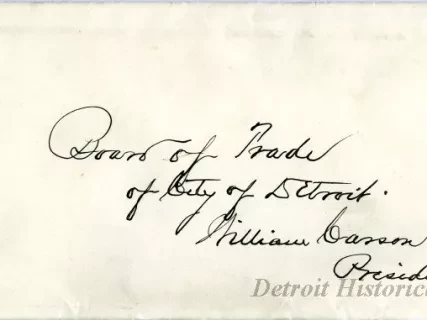 Board of Trade
of City of Detroit.
William Carson
Presid
Detroit Historica